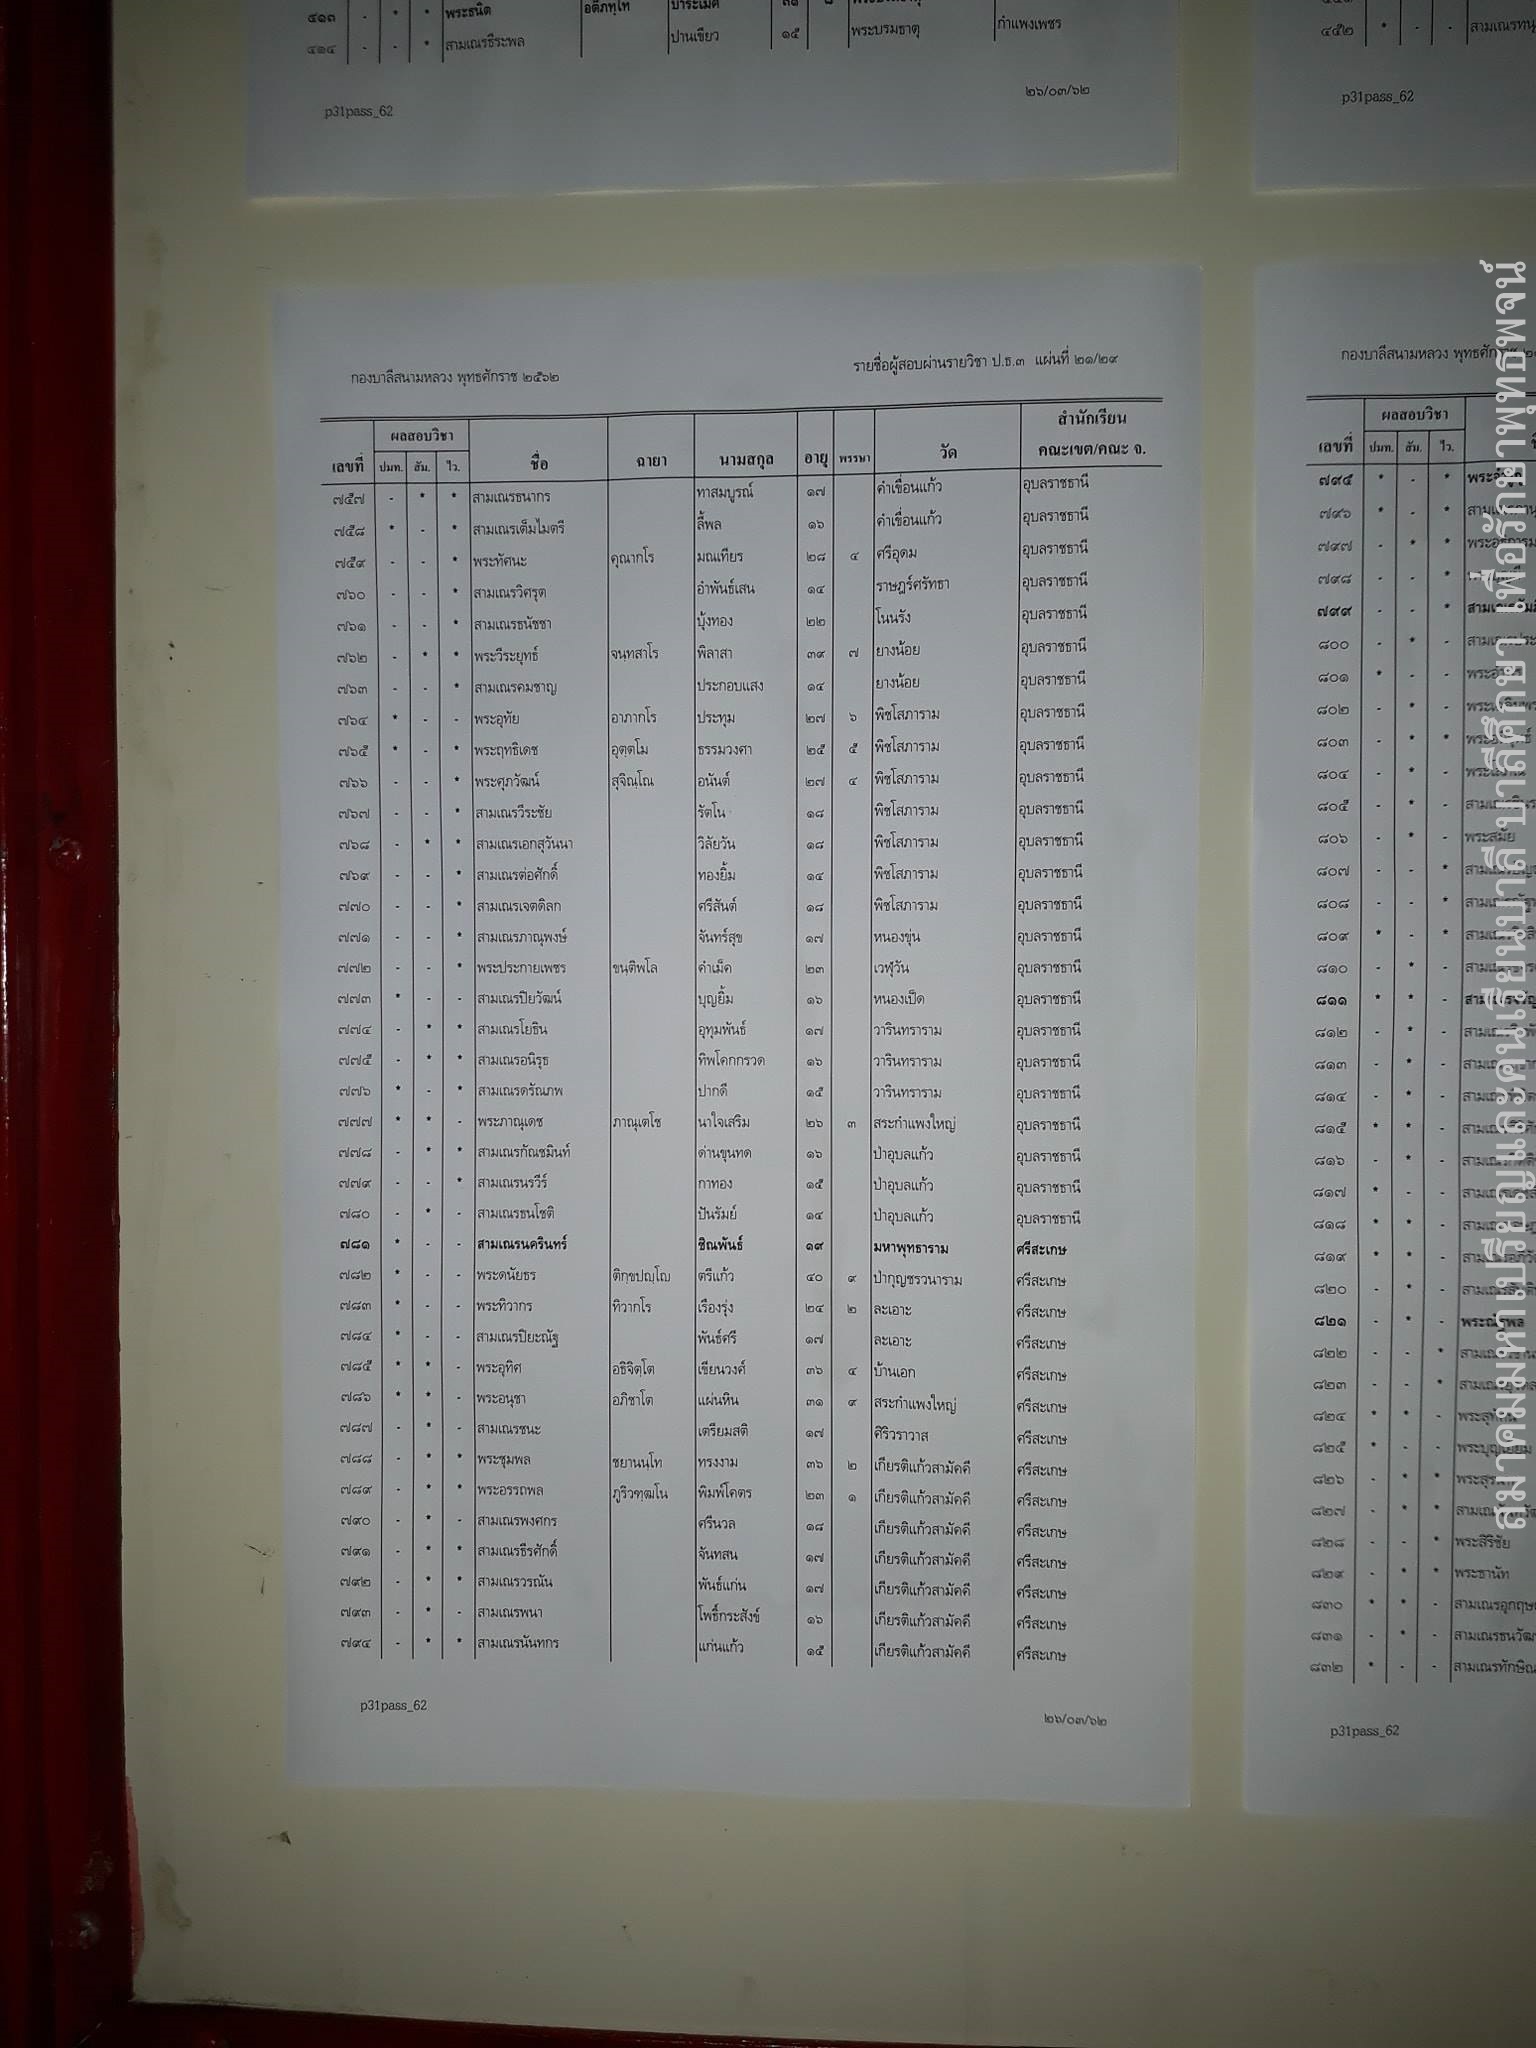 ๔๑๓ - * * พระธนิต
๔๑๔ - - * สามเณรธีระพล ปานเขียว ๑๕ พระบรมธาตุ กำแพงเพชร
p31pass_62 ๒๖/๐๓/๖๒
๔๕๒ * - -
p31pass_62
กองบาลีสนามหลวง พุทธศักราช ๒๕๖๒ รายชื่อผู้สอบผ่านรายวิชา ป.ธ.๓ แผ่นที่ ๒๑/๒๙
เลขที่ ผลสอบวิชา ชื่อ ฉายา นามสกุล อายุ พรรษา วัด สำนักเรียน
ปมท. สัม. ไว. คณะเขต/คณะ จ.
๗๕๗ - * * สามเณรธนากร ทาสมบูรณ์ ๑๗ คำเขื่อนแก้ว อุบลราชธานี
๗๕๘ * - * สามเณรเต็มไมตรี ลี้พล ๑๖ คำเขื่อนแก้ว อุบลราชธานี
๗๕๙ - - * พระทัศนะ คุณากโร มณเทียร ๒๘ ๔ ศรีอุดม อุบลราชธานี
๗๖๐ - - * สามเณรวิศรุต อำพันธ์เสน ๑๔ ราษฎร์ศรัทธา อุบลราชธานี
๗๖๑ - - * สามเณรธนัชชา บุ้งทอง ๒๒ โนนรัง อุบลราชธานี
๗๖๒ - * * พระวีระยุทธ์ จนฺทสาโร พิลาสา ๓๙ ๗ ยางน้อย อุบลราชธานี
๗๖๓ - - * สามเณรคมชาญ ประกอบแสง ๑๔ ยางน้อย อุบลราชธานี
๗๖๔ * - - พระอุทัย อาภากโร ประทุม ๒๗ ๖ พิชโสภาราม อุบลราชธานี
๗๖๕ * - * พระฤทธิเดช อุตฺตโม ธรรมวงศา ๒๕ ๕ พิชโสภาราม อุบลราชธานี
๗๖๖ - - * พระศุภวัฒน์ สุจิณฺโณ อนันต์ ๒๗ ๔ พิชโสภาราม อุบลราชธานี
๗๖๗ - - * สามเณรวีระชัย รัตโน ๑๘ พิชโสภาราม อุบลราชธานี
๗๖๘ - * * สามเณรเอกสุวันนา วิลัยวัน ๑๘ พิชโสภาราม อุบลราชธานี
๗๖๙ - - * สามเณรต่อศักดิ์ ทองยิ้ม ๑๔ พิชโสภาราม อุบลราชธานี
๗๗๐ - - * สามเณรเจตดิลก ศรีสันต์ ๑๘ พิชโสภาราม อุบลราชธานี
๗๗๑ - - * สามเณรภาณุพงษ์ จันทร์สุข ๑๗ หนองขุ่น อุบลราชธานี
๗๗๒ - - * พระประกายเพชร ขนฺติพโล คำเม็ค ๒๓ เวฬุวัน อุบลราชธานี
๗๗๓ * - - สามเณรปิยวัฒน์ บุญยิ้ม ๑๖ หนองเป็ด อุบลราชธานี
๗๗๔ - * * สามเณรโยธิน อุทุมพันธ์ ๑๗ วารินทราราม อุบลราชธานี
๗๗๕ - * * สามเณรอนิรุธ ทิพโคกกรวด ๑๖ วารินทราราม อุบลราชธานี
๗๗๖ * - * สามเณรดรัณภพ ปากดี ๑๕ วารินทราราม อุบลราชธานี
๗๗๗ * * - พระภาณุเดช ภาณุเตโช นาใจเสริม ๒๖ ๓ สระกำแพงใหญ่ อุบลราชธานี
๗๗๘ - * * สามเณรกัณชมินท์ ด่านขุนทด ๑๖ ป่าอุบลแก้ว อุบลราชธานี
๗๗๙ - - * สามเณรนรวีร์ กาทอง ๑๕ ป่าอุบลแก้ว อุบลราชธานี
๗๘๐ - * - สามเณรธนโชติ ปันรัมย์ ๑๔ ป่าอุบลแก้ว อุบลราชธานี
๗๘๑ * - - สามเณรนครินทร์ ชิณพันธ์ ๑๙ มหาพุทธาราม ศรีสะเกษ
๗๘๒ * - - พระดนัยธร ติกฺขปญฺโญ ตรีแก้ว ๔๐ ๙ ป่ากุญชรวนาราม ศรีสะเกษ
๗๘๓ * - - พระทิวากร ทิวากโร เรืองรุ่ง ๒๔ ๒ ละเอาะ ศรีสะเกษ
๗๘๔ * - - สามเณรปิยะณัฐ พันธ์ศรี ๑๗ ละเอาะ ศรีสะเกษ
๗๘๕ * * - พระอุทิศ อธิจิตฺโต เขียนวงศ์ ๓๖ ๔ บ้านเอก ศรีสะเกษ
๗๘๖ * * - พระอนุชา อภิชาโต แผ่นหิน ๓๑ ๙ สระกำแพงใหญ่ ศรีสะเกษ
๗๘๗ - * - สามเณรชนะ เตรียมสติ ๑๗ ศิริวราวาส ศรีสะเกษ
๗๘๘ - * * พระชุมพล ชยานนฺโท ทรงงาม ๓๖ ๒ เกียรติแก้วสามัคคี ศรีสะเกษ
๗๘๙ - * * พระอรรถพล ภูริวฑฺฒโน พิมพ์โคตร ๒๓ ๑ เกียรติแก้วสามัคคี ศรีสะเกษ
๗๙๐ - * - สามเณรพงศกร ศรีนวล ๑๘ เกียรติแก้วสามัคคี ศรีสะเกษ
๗๙๑ - * * สามเณรธีรศักดิ์ จันทสน ๑๗ เกียรติแก้วสามัคคี ศรีสะเกษ
๗๙๒ - * * สามเณรวรณัน พันธ์แก่น ๑๗ เกียรติแก้วสามัคคี ศรีสะเกษ
๗๙๓ - * - สามเณรพนา โพธิ์กระสังข์ ๑๖ เกียรติแก้วสามัคคี ศรีสะเกษ
๗๙๔ - * * สามเณรนันทกร แก่นแก้ว ๑๕ เกียรติแก้วสามัคคี ศรีสะเกษ
p31pass_62 ๒๖/๐๓/๖๒
กองบาลีสนามหลวง
เลขที่ ผลสอบวิชา
ปมท. สัม. ไว.
๗๙๕ * - *
๗๙๖ * - *
๗๙๗ - * *
๗๙๘ - - *
๗๙๙ - - *
๘๐๐ - * -
๘๐๑ * - -
๘๐๒ - * -
๘๐๓ - * *
๘๐๔ - * -
๘๐๕ - * -
๘๐๖ - * - พระสมัย
๘๐๗ - - *
๘๐๘ - - *
๘๐๙ * - *
๘๑๐ - * -
๘๑๑ * * -
๘๑๒ - * -
๘๑๓ - * -
๘๑๔ - * -
๘๑๕ * * -
๘๑๖ - * -
๘๑๗ * - -
๘๑๘ * * -
๘๑๙ * * -
๘๒๐ - * -
๘๒๑ - * -
๘๒๒ - - *
๘๒๓ - - *
๘๒๔ * * -
๘๒๕ * - -
๘๒๖ - * *
๘๒๗ - * *
๘๒๘ - - * พระสิริชัย
๘๒๙ - * * พระธานัท
๘๓๐ * * -
๘๓๑ - * -
๘๓๒ * - -
p31pass_62
สมาคมมหาเปรียญและคนเรียนบาลี บาลีศึกษา เพื่อร้ายาพุ่ทธิพจน์